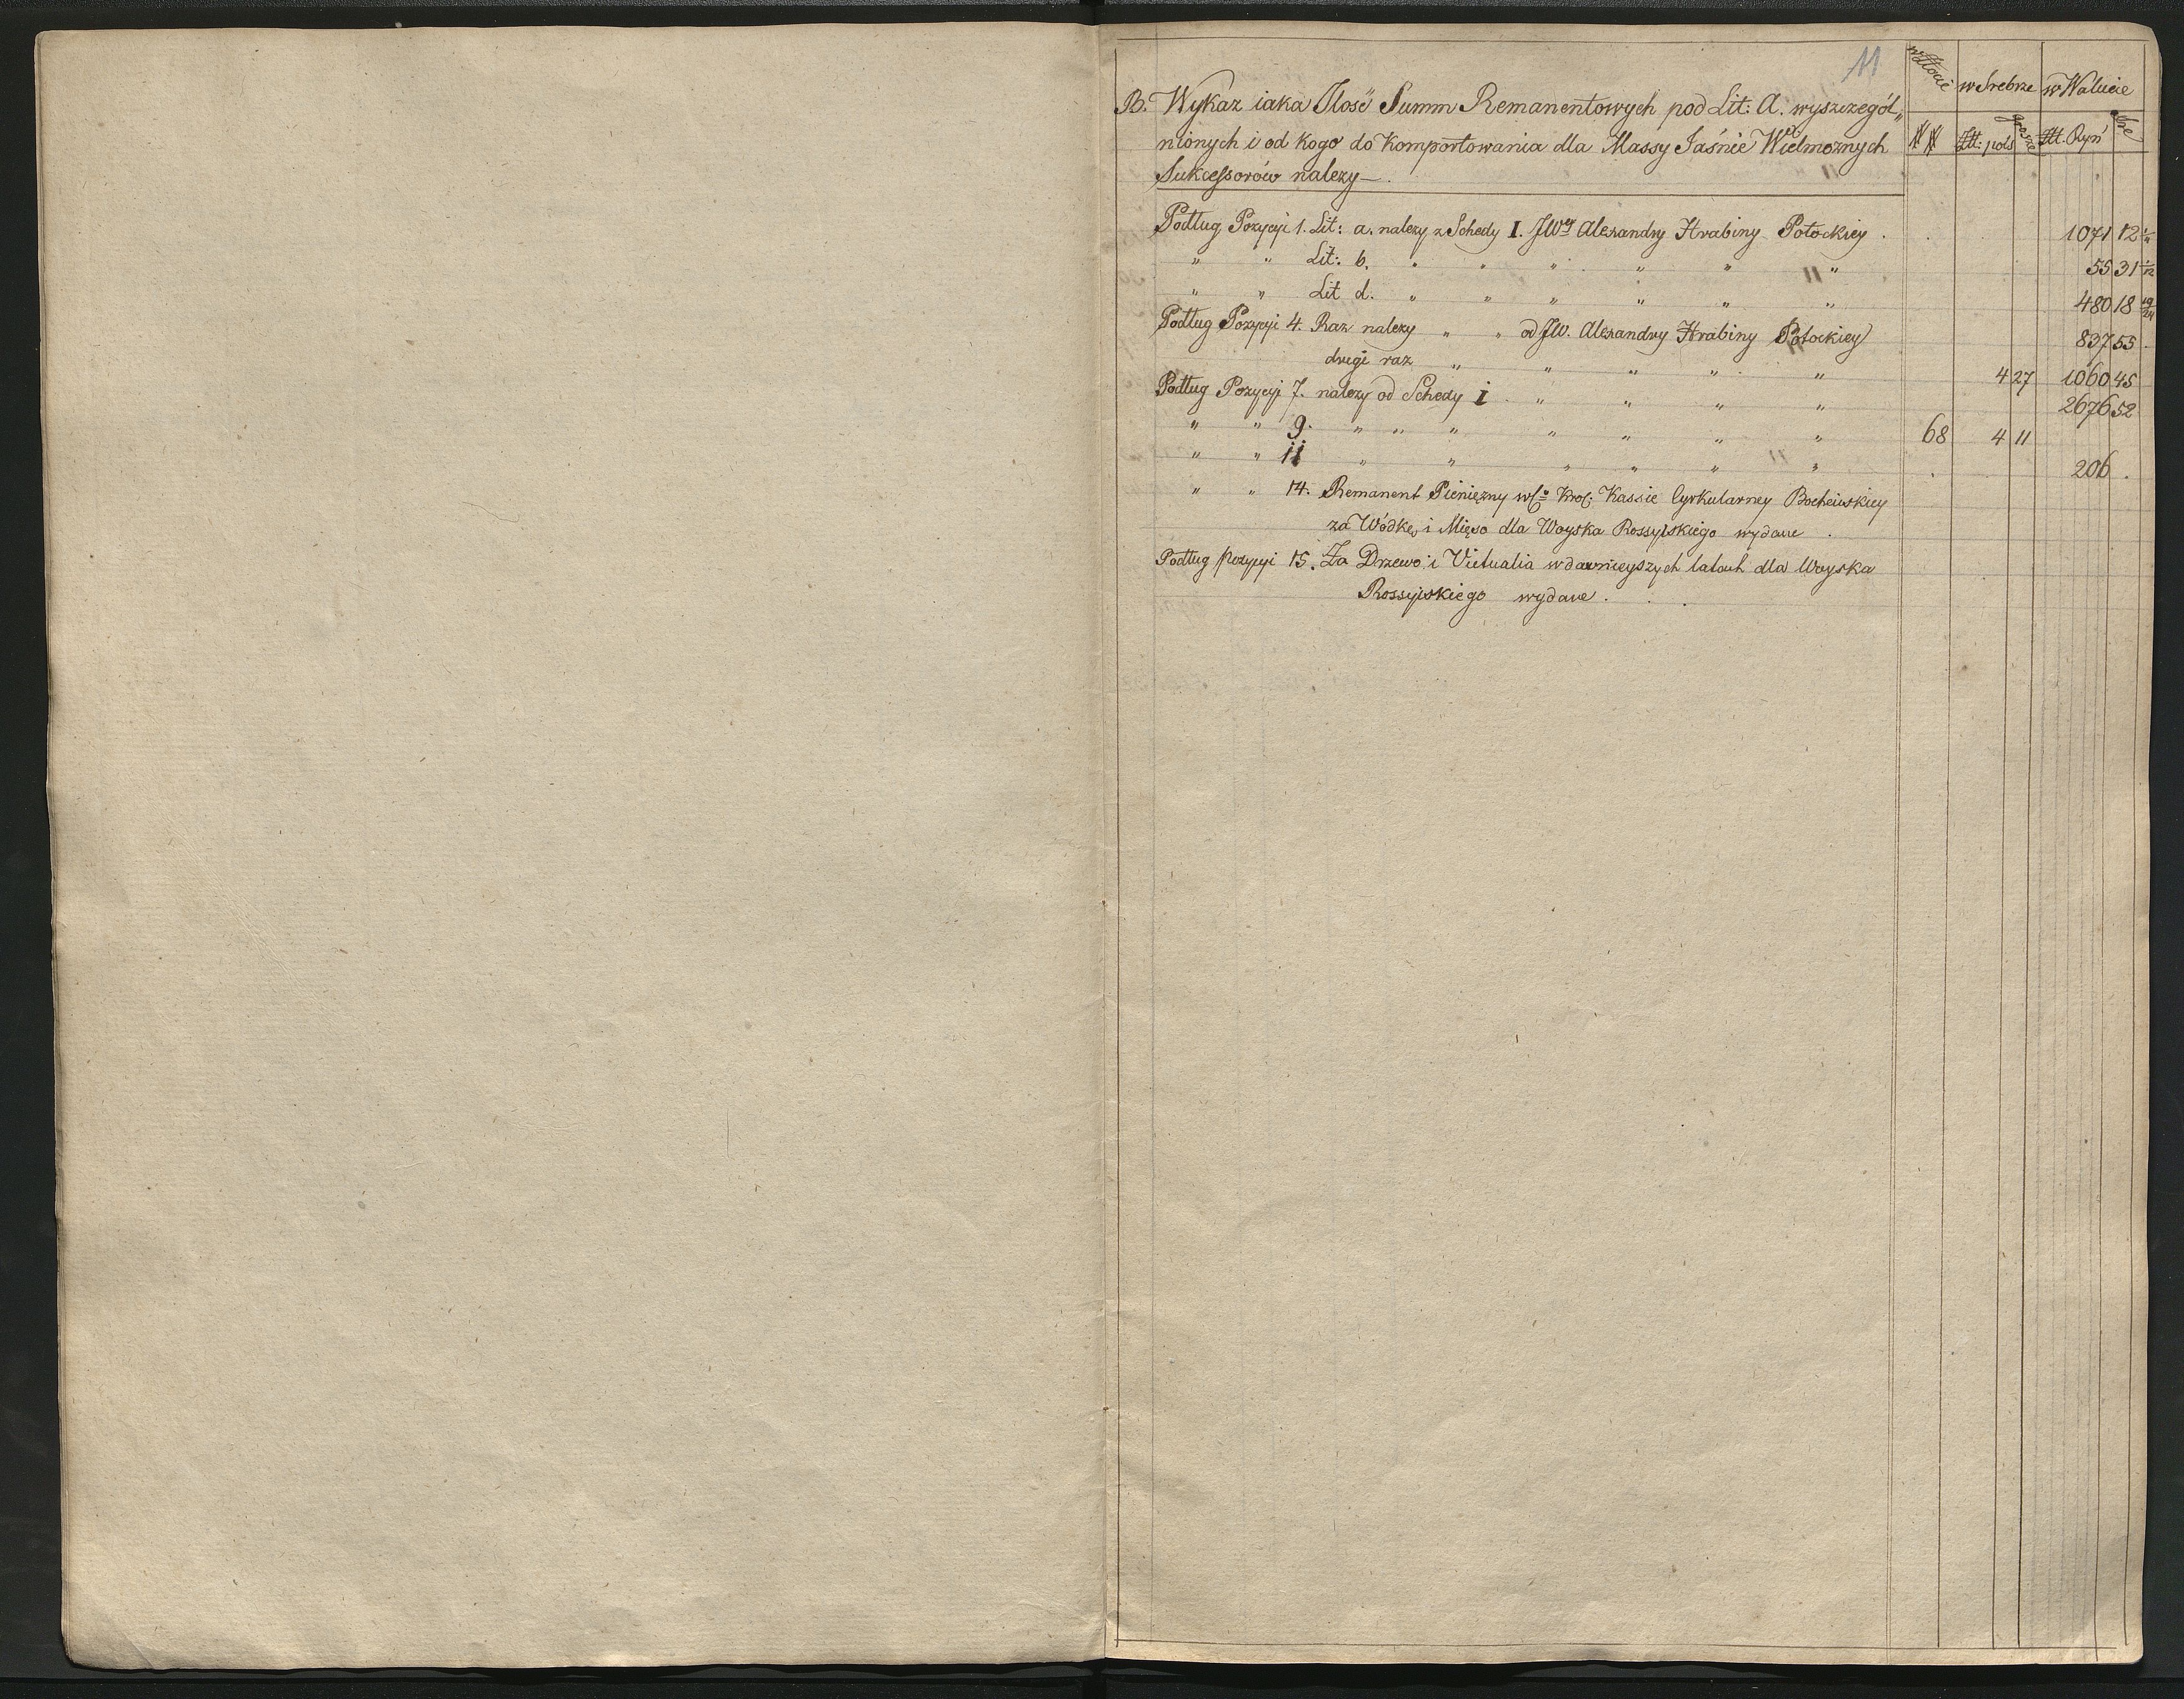 11
w Złocie w Srebrze w Walucie
B. Wykaz iaka Jlość Summ Remanentowych pod Lit: A. wyszczegól„
## Złt: pols grosze Złt. Ryń bre
nionych i od kogo do Komportowania dla Massy Jaśnie Wielmoznych
Sukcessorów nalezy —.
Podług Pozycyi 1. Lit: a. nalezy z Schedy I. JWey Alexandry Hrabiny Potockiey . 1071 12
" " Lit: b. " " " " " " 55 31 1/12
" " Lit d. " " " " " " 480 18 19/24
Podług Pozycyi 4. Raz nalezy " " od JW. Alexandry Hrabiny Potockiey 837 55
drugi raz " " " " " 4 27 1060 45
Podług Pozycyi 7. nalezy od Schedy I . " " " " 2676 52
" " 9. " " " " " " " 68 4 11
" " 11 " " " " " " 206 .
" " 14. Remanent Pieniężny w Kassie Cyrkularney Bocheńskiey
za Wódkę i Mięso dla Woyska Rossyiskiego wydane .
Podług pozycyi 15. Za Drzewo i Victualia w dawnieyszych latach dla Woyska
Rossyiskiego wydane . . .